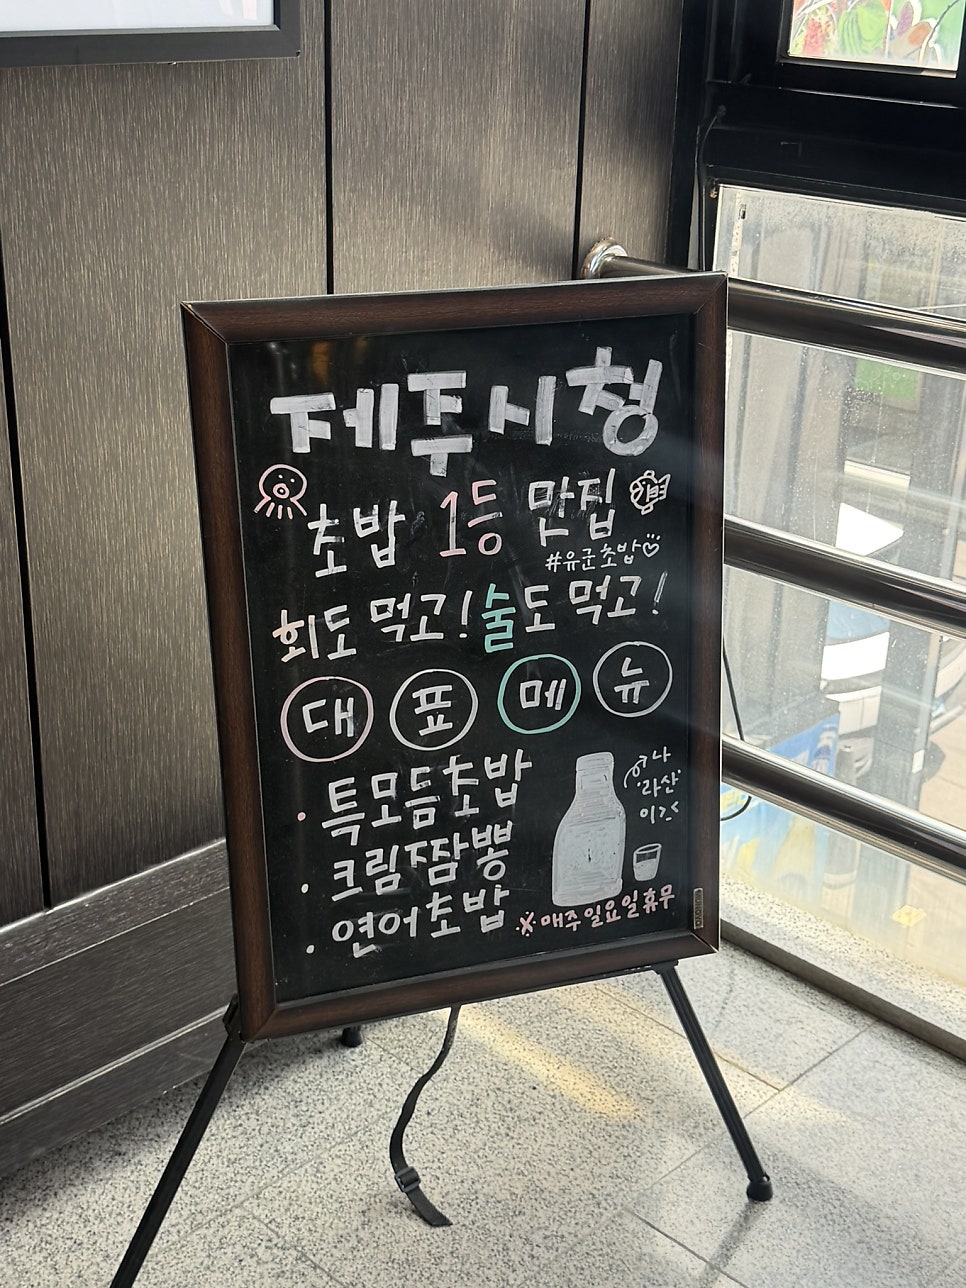 제주시청
초밥 1등 맛집
#유군초밥
회도 먹고! 술도 먹고!
대표메뉴
· 특모듬초밥
· 크림짬뽕
· 연어초밥
나
라산
※매주일요일휴무